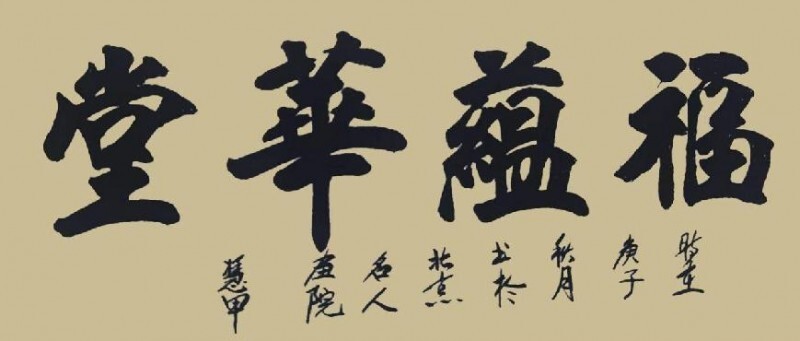 福蘊華堂
时在
庚子
秋月
书於
北京
名人
画院
慧甲